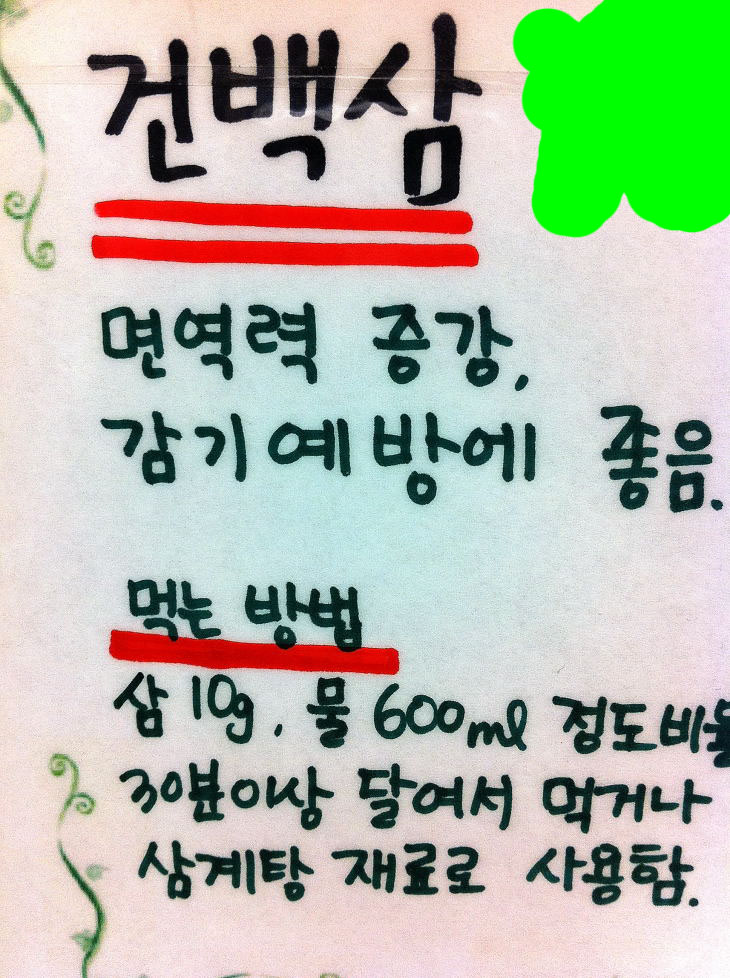 건백삼
면역력 증강,
감기 예방에 좋음.
먹는 방법
삼 10g, 물 600ml 정도비율
30분이상 달여서 먹거나
삼계탕 재료로 사용함.